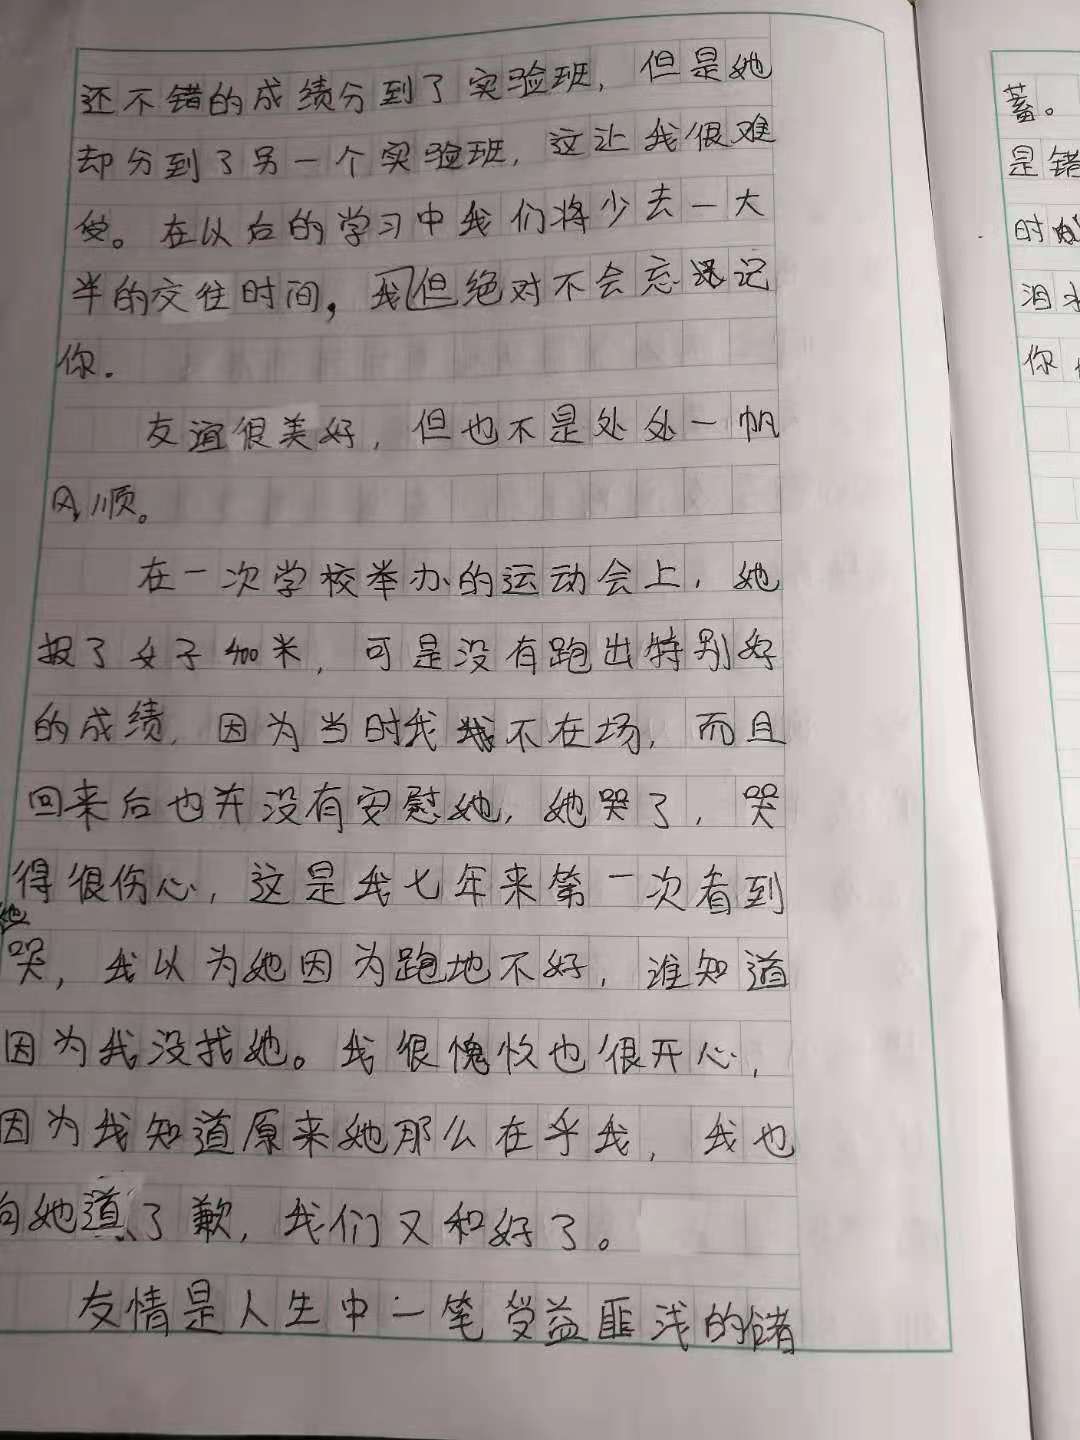 还不错的成绩分到了实验班，但是她
却分到了另一个实验班，这让我很难
受。在以后的学习中我们将少去一大
半的交往时间，我但绝对不会忘记
你.
友谊很美好，但也不是处处一帆
风顺。
在一次学校举办的运动会上，她
报了女子400米，可是没有跑出特别好
的成绩，因为当时我不在场，而且
回来后也并没有安慰她，她哭了，哭
得很伤心，这是我七年来第一次看到
她哭，我以为她因为跑地不好，谁知道
因为我没找她。我很愧疚也很开心，
因为我知道原来她那么在乎我，我也
向她道了歉，我们又和好了。
友情是人生中一笔受益匪浅的储
蓄。
是错
时的
泪水
你